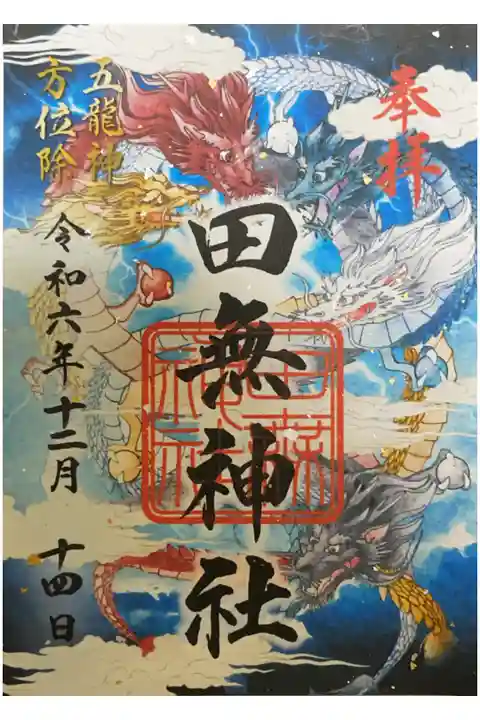 奉拝
田無神社
五龍神
方位除
令和六年十二月十四日
田無神社